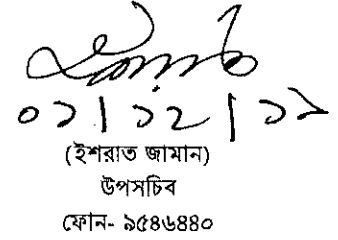 ০১|১২|১৯
(ইশরাত জামান)
উপসচিব
ফোন- ৯৫৪৬৪৪০